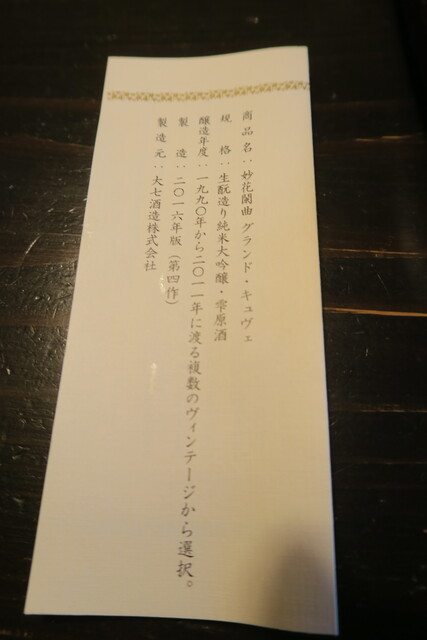 商品名：妙花闌曲 グランド・キュヴェ
規格：生酛造り純米大吟醸・雫原酒
醸造年度：一九九〇年から二〇一一年に渡る複数のヴィンテージから選択。
製造：二〇一六年版（第四作）
製造元：大七酒造株式会社